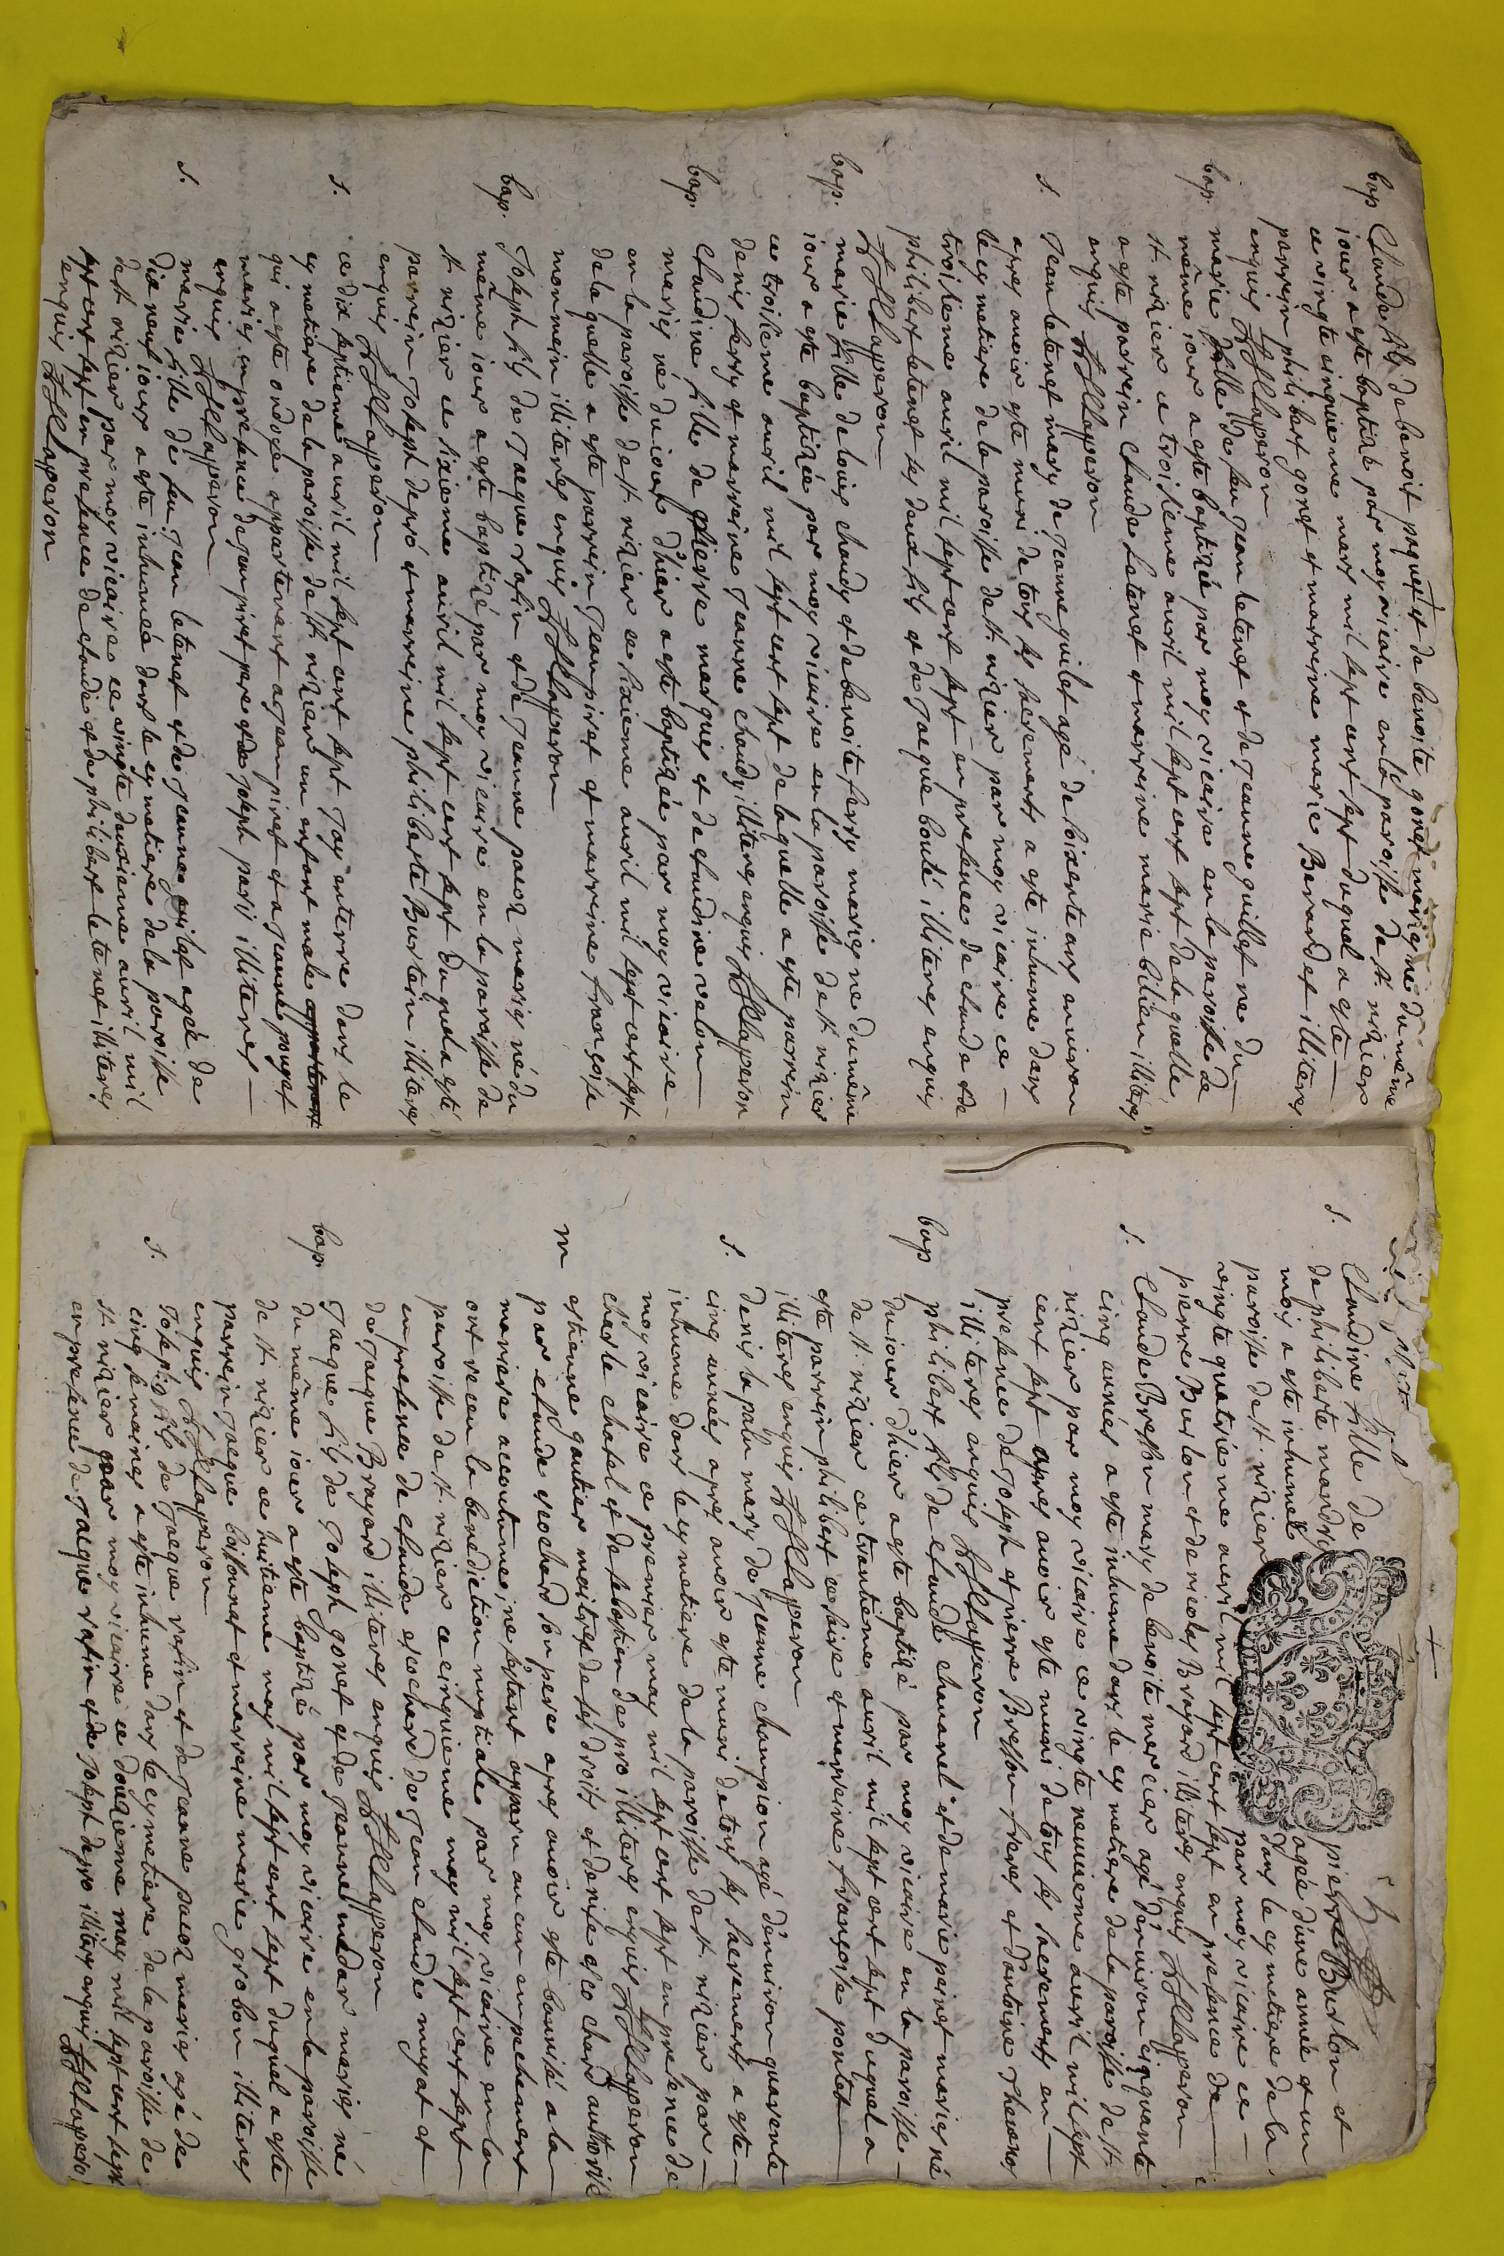 bap Claude fils de benoit paquet et de benoite gonet mariés né du même
iour a este baptisé par moy vicaire en la paroisse de st nizier
ce vingte cinquieme mars mil sept cent sept duquel a este
parrein philibert gonet et marreine marie Berardet illiteres
enquis Lappeiron
bap. marie fille de feu jean latenet et de jeanne quillet ne du
même iour a este baptizée par moy vicaire en la paroisse de
st nizier ce troisieme auril mil sept cent sept de la quelle
a este parrein claude latenet et marreine marie bilien illiteres
enquis
s. jean latenet mary de jeanne quilet agé de soixante ans enuiron
apres auoir este muni de tous ses sacrements a este inhume dans
le cymetiere de la paroisse de st nizier par moy vicaire ce
troisieme auril mil sept cent sept en presence de claude et de
philibert latenet ses deux fils et de jaeque bouté illiteres enquis
bap. marie fille de louis chaudy et de benoite ferry mariés ne du même
iour a este baptizée par moy vicaire en la paroisse de st nizier
ce troisieme auril mil sept cent sept de la quelle a este parrein
denis ferry et marreine jeanne chaudy illiteres enquis
bap. claudine fille de pierre marques et de claudine valon
mariés né du iour d'hier a este baptizée par moy vicaire
en la paroisse de st nizier ce sixieme auril mil sept cent sept
de la quelle a este parrein jean piret et marreine françoise
monmein illiteres enquis
bap. joseph fils de jaeque rafin et de jeanne pacoz mariés né du
même iour a este baptizé par moy vicaire en la paroisse de
st nizier ce sixieme auril mil sept cent sept du quel a esté
parrein joseph depró et marreine philiberte Burtein illiteres
enquis
s. ce dix septieme auril mil sept cent sept iay enterre dans le
cymetiere de la paroisse de st nizier un enfant male
qui a este ondoyé appartenent a jean piret et a jeanne pouget
mariés en presence de jean piret pere et de joseph paris illiteres
enquis
s. marie fille de feu jean latenet et de jeanne quilet agée de
dix neuf iours a este inhumée dans le cymetiere de la paroisse
de st nizier par moy vicaire ce vingte deuxieme auril mil
sept cent sept en presence de claude et de philibert latenet illiteres
enquis
s. Claudine fille de pierre Burlon et
de philiberte mandry agée d'une année et un
mois a este inhumée dans le cymetiere de la
paroisse de st nizier par moy vicaire ce
vingte quatrieme auril mil sept cent sept en presence de
pierre Burlon et de nicolas Brayard illiteres enquis
s. Claude Bresson mary de benoite mercier agé d'enuiron cinquante
cinq années a este inhume dans le cymetiere de la paroisse de st
nizier par moy vicaire ce vingte neuuieme auril mil sept
cent sept apres auoir este muni de tous ses sacrements en
presence de joseph et pierre Bresson freres et d'antoine theuenos
illiteres enquis
bap philibert fils de claude chauanel et de marie peiret mariés né
du iour d'hier a este baptizé par moy vicaire en la paroisse
de st nizier ce trantieme auril mil sept cent sept duquel a
este parrein philibert et marreine françoise pontet
illiteres enquis
s. denis la palu mary de jeanne champion agé d'enuiron quarente
cinq années apres auoir este muni de tous ses sacrements a este
inhume dans le cymetiere de la paroisse de st nizier par
moy vicaire ce premier may mil sept cent sept en presence de
charle chatel et de sebastien de pro illiteres enquis
m estienne gautier maitre de ses droits et denise escochard authorisé
par claude escochard son pere apres auoir este bannisé a la
maniere accoutumée, ne s'etant apparu aucun empechement
ont receu la benediction nuptiale par moy vicaire en la
paroisse de st nizier ce cinquieme may mil sept cent sept
en presence de claude escochard de jean claude mugat et
de jaeque Brayard illiteres enquis
bap. jaeque fils de joseph gonet et de jeanne medar mariés né
du même iour a este baptizé par moy vicaire en la paroisse
de st nizier ce huitieme may mil sept cent sept duquel a este
parrein jaeque boissonet et marreine marie grobon illiteres
enquis
s. joseph fils de jaeque rafin et de jeanne pacoz mariés agé de
cinq semaines a este inhume dans le cymetiere de la paroisse de
st nizier par moy vicaire ce douzieme may mil sept cent sept
en presence de jaeque rafin et de joseph depro illiteres enquis